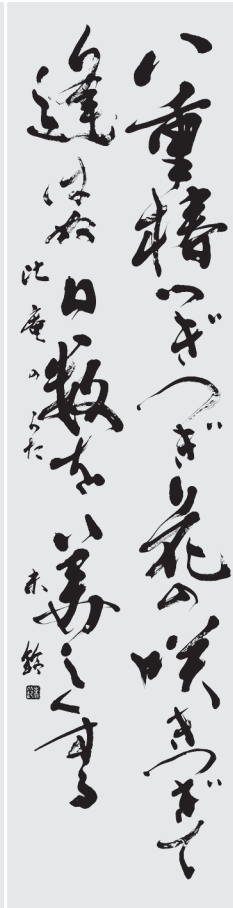 八重椿つぎつぎ花の咲きつぎて
逢はぬ日数を美しくする
比庵のうた